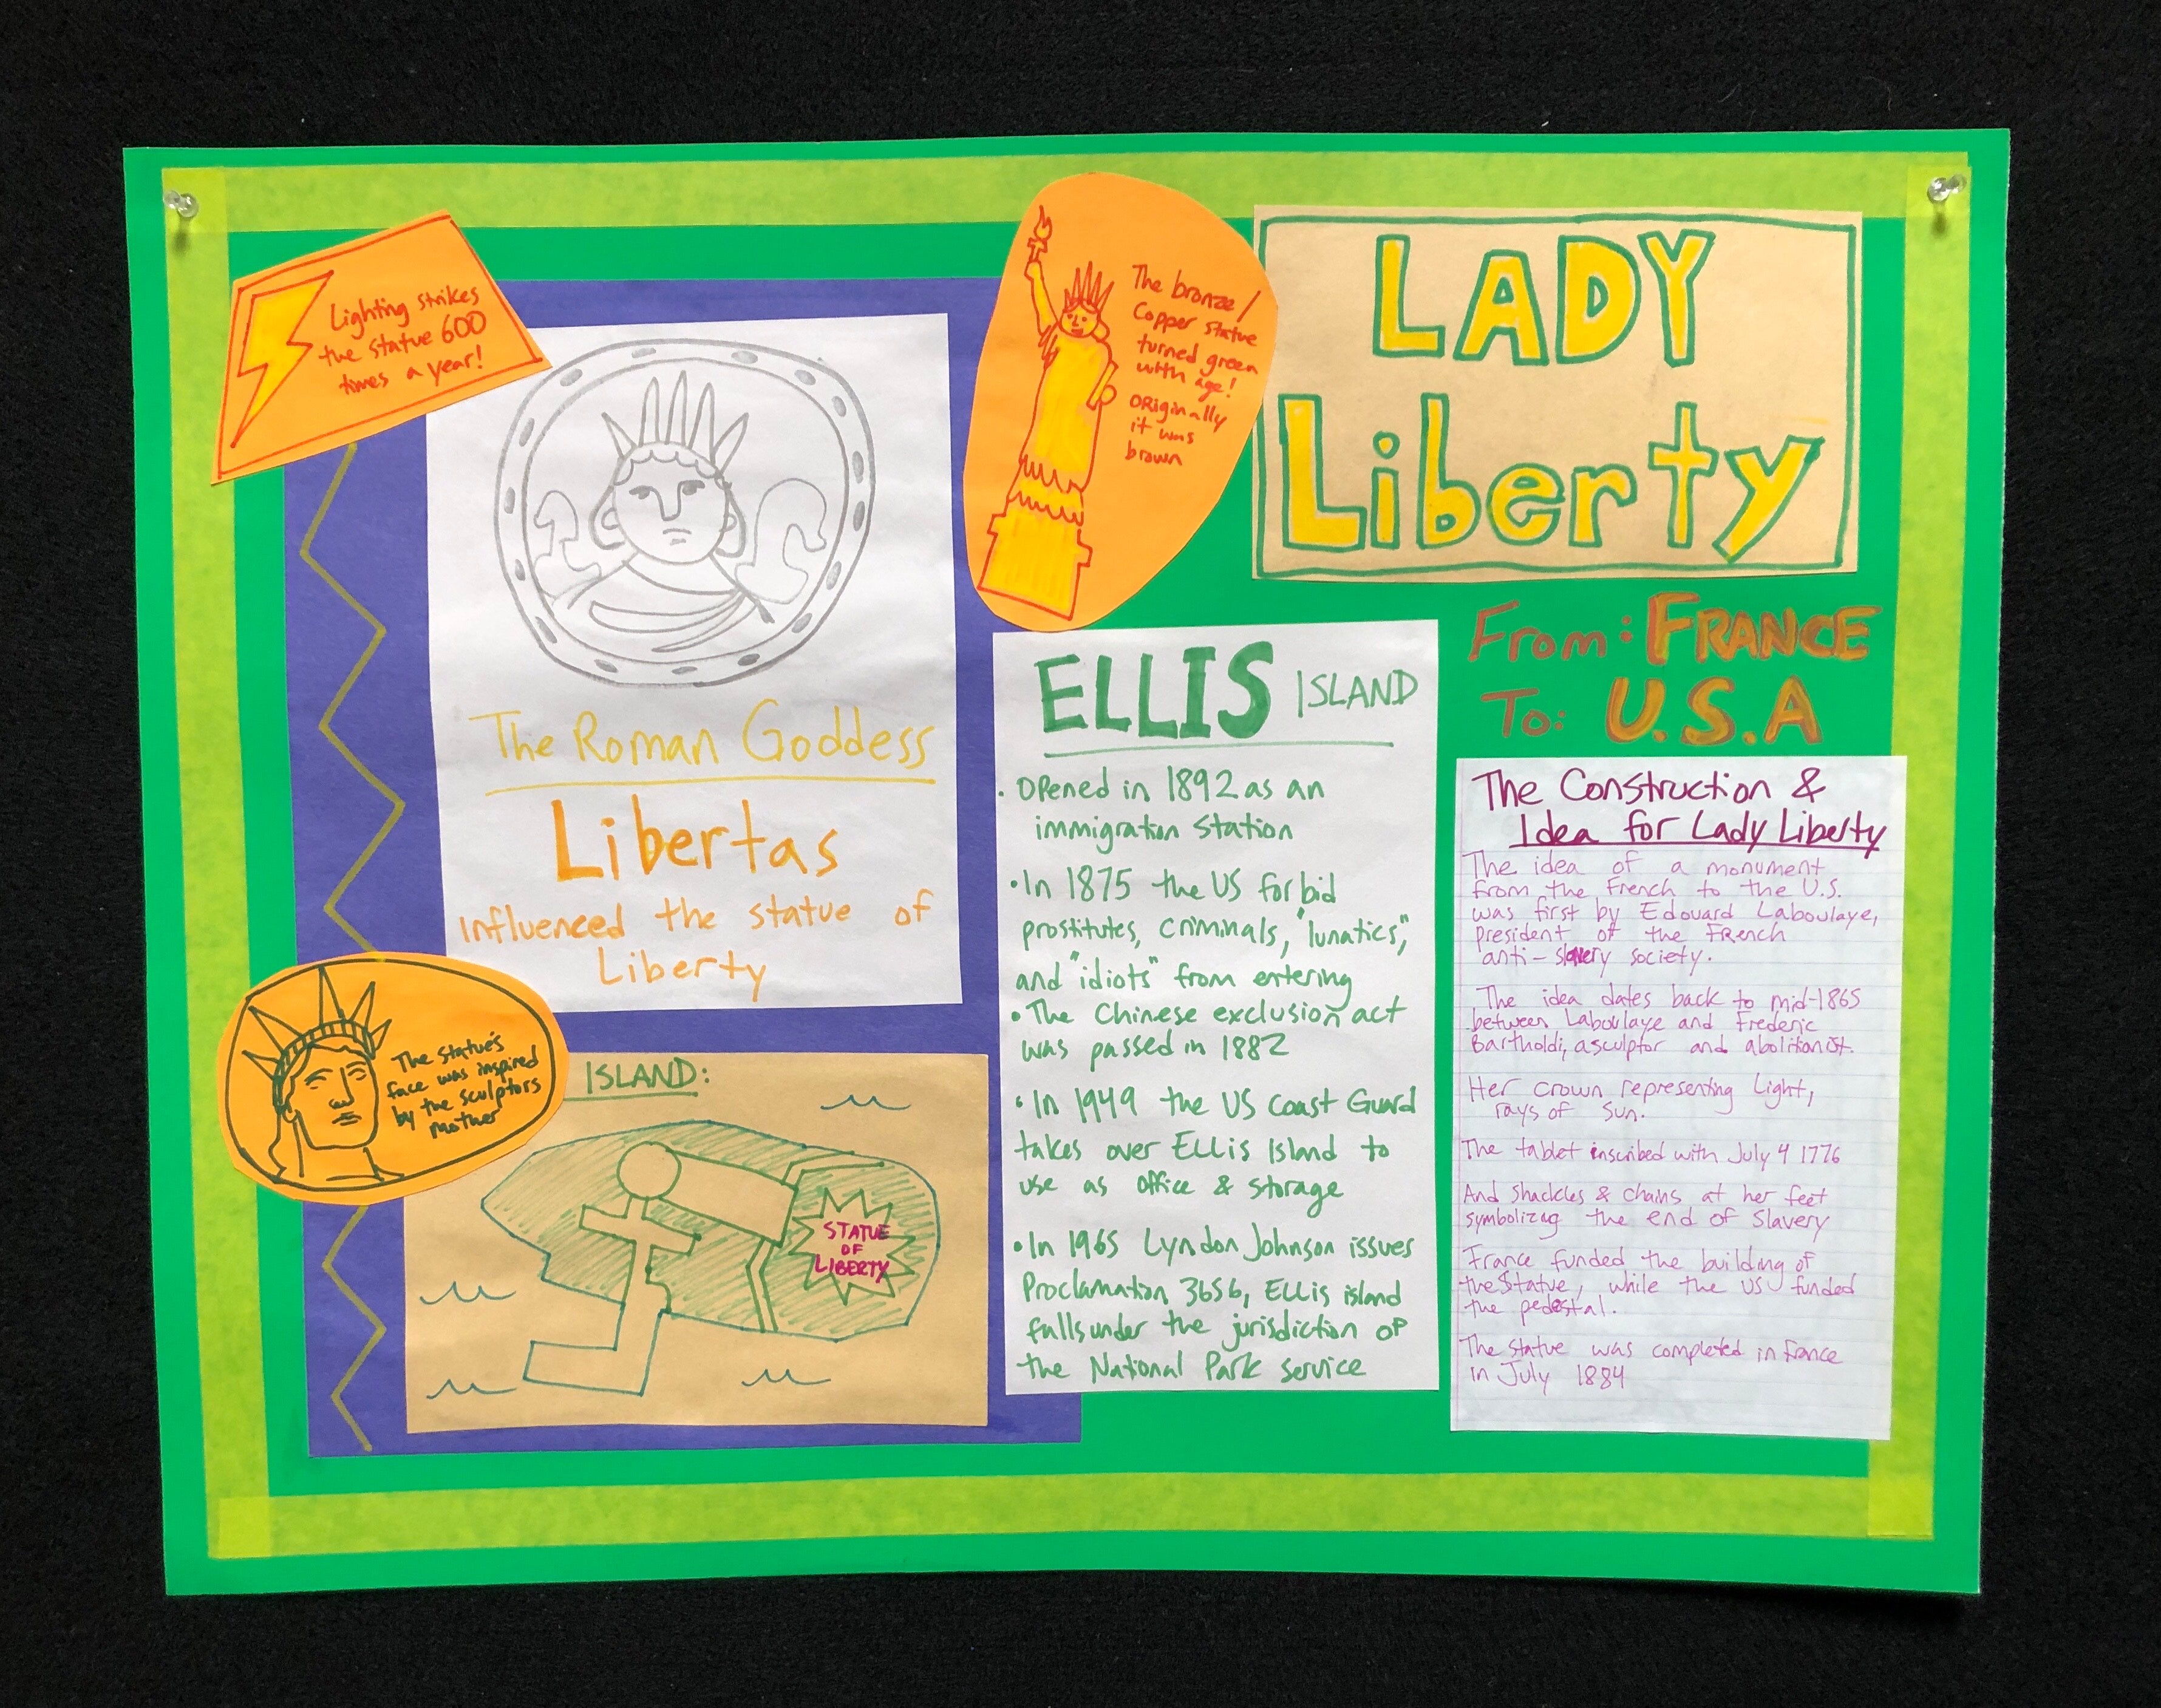 LADY
Liberty
From: FRANCE
To: U.S.A
Lighting strikes
the statue 600
times a year!
The Roman Goddess
Libertas
influenced the statue of
Liberty
The bronze/
Copper statue
turned green
with age!
ORiginally
it was
brown
The statue's
face was inspired
by the sculptors
mother
ISLAND:
STATUE
OF
LIBERTY
ELLIS ISLAND
• Opened in 1892 as an
immigration station
• In 1875 the US forbid
prostitutes, criminals, "lunatics",
and "idiots" from entering
• The Chinese exclusion act
was passed in 1882
• In 1949 the US Coast Guard
takes over Ellis Island to
use as office & storage
• In 1965 Lyndon Johnson issues
Proclamation 3656, Ellis island
falls under the jurisdiction of
the National Park service
The Construction &
Idea for Lady Liberty
The idea of a monument
from the French to the U.S.
was first by Edouard Laboulaye,
president of the French
anti-slavery society.
The idea dates back to mid-1865
between Laboulaye and Frederic
Bartholdi, a sculptor and abolitionist.
Her crown representing Light,
rays of sun.
The tablet inscribed with July 4 1776
And shackles & chains at her feet
symbolizing the end of slavery
France funded the building of
the Statue, while the US funded
the pedestal.
The statue was completed in france
in July 1884